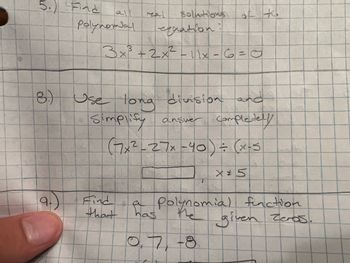 5.) Find all real solutions of the
polynomial equation:
3x³ + 2x² - 11x - 6 = 0
8.) Use long division and
simplify answer completely
(7x² - 27x - 40) ÷ (x-5
, x ≠ 5
9.) Find a polynomial function
that has the given zeros.
0, 7, -8